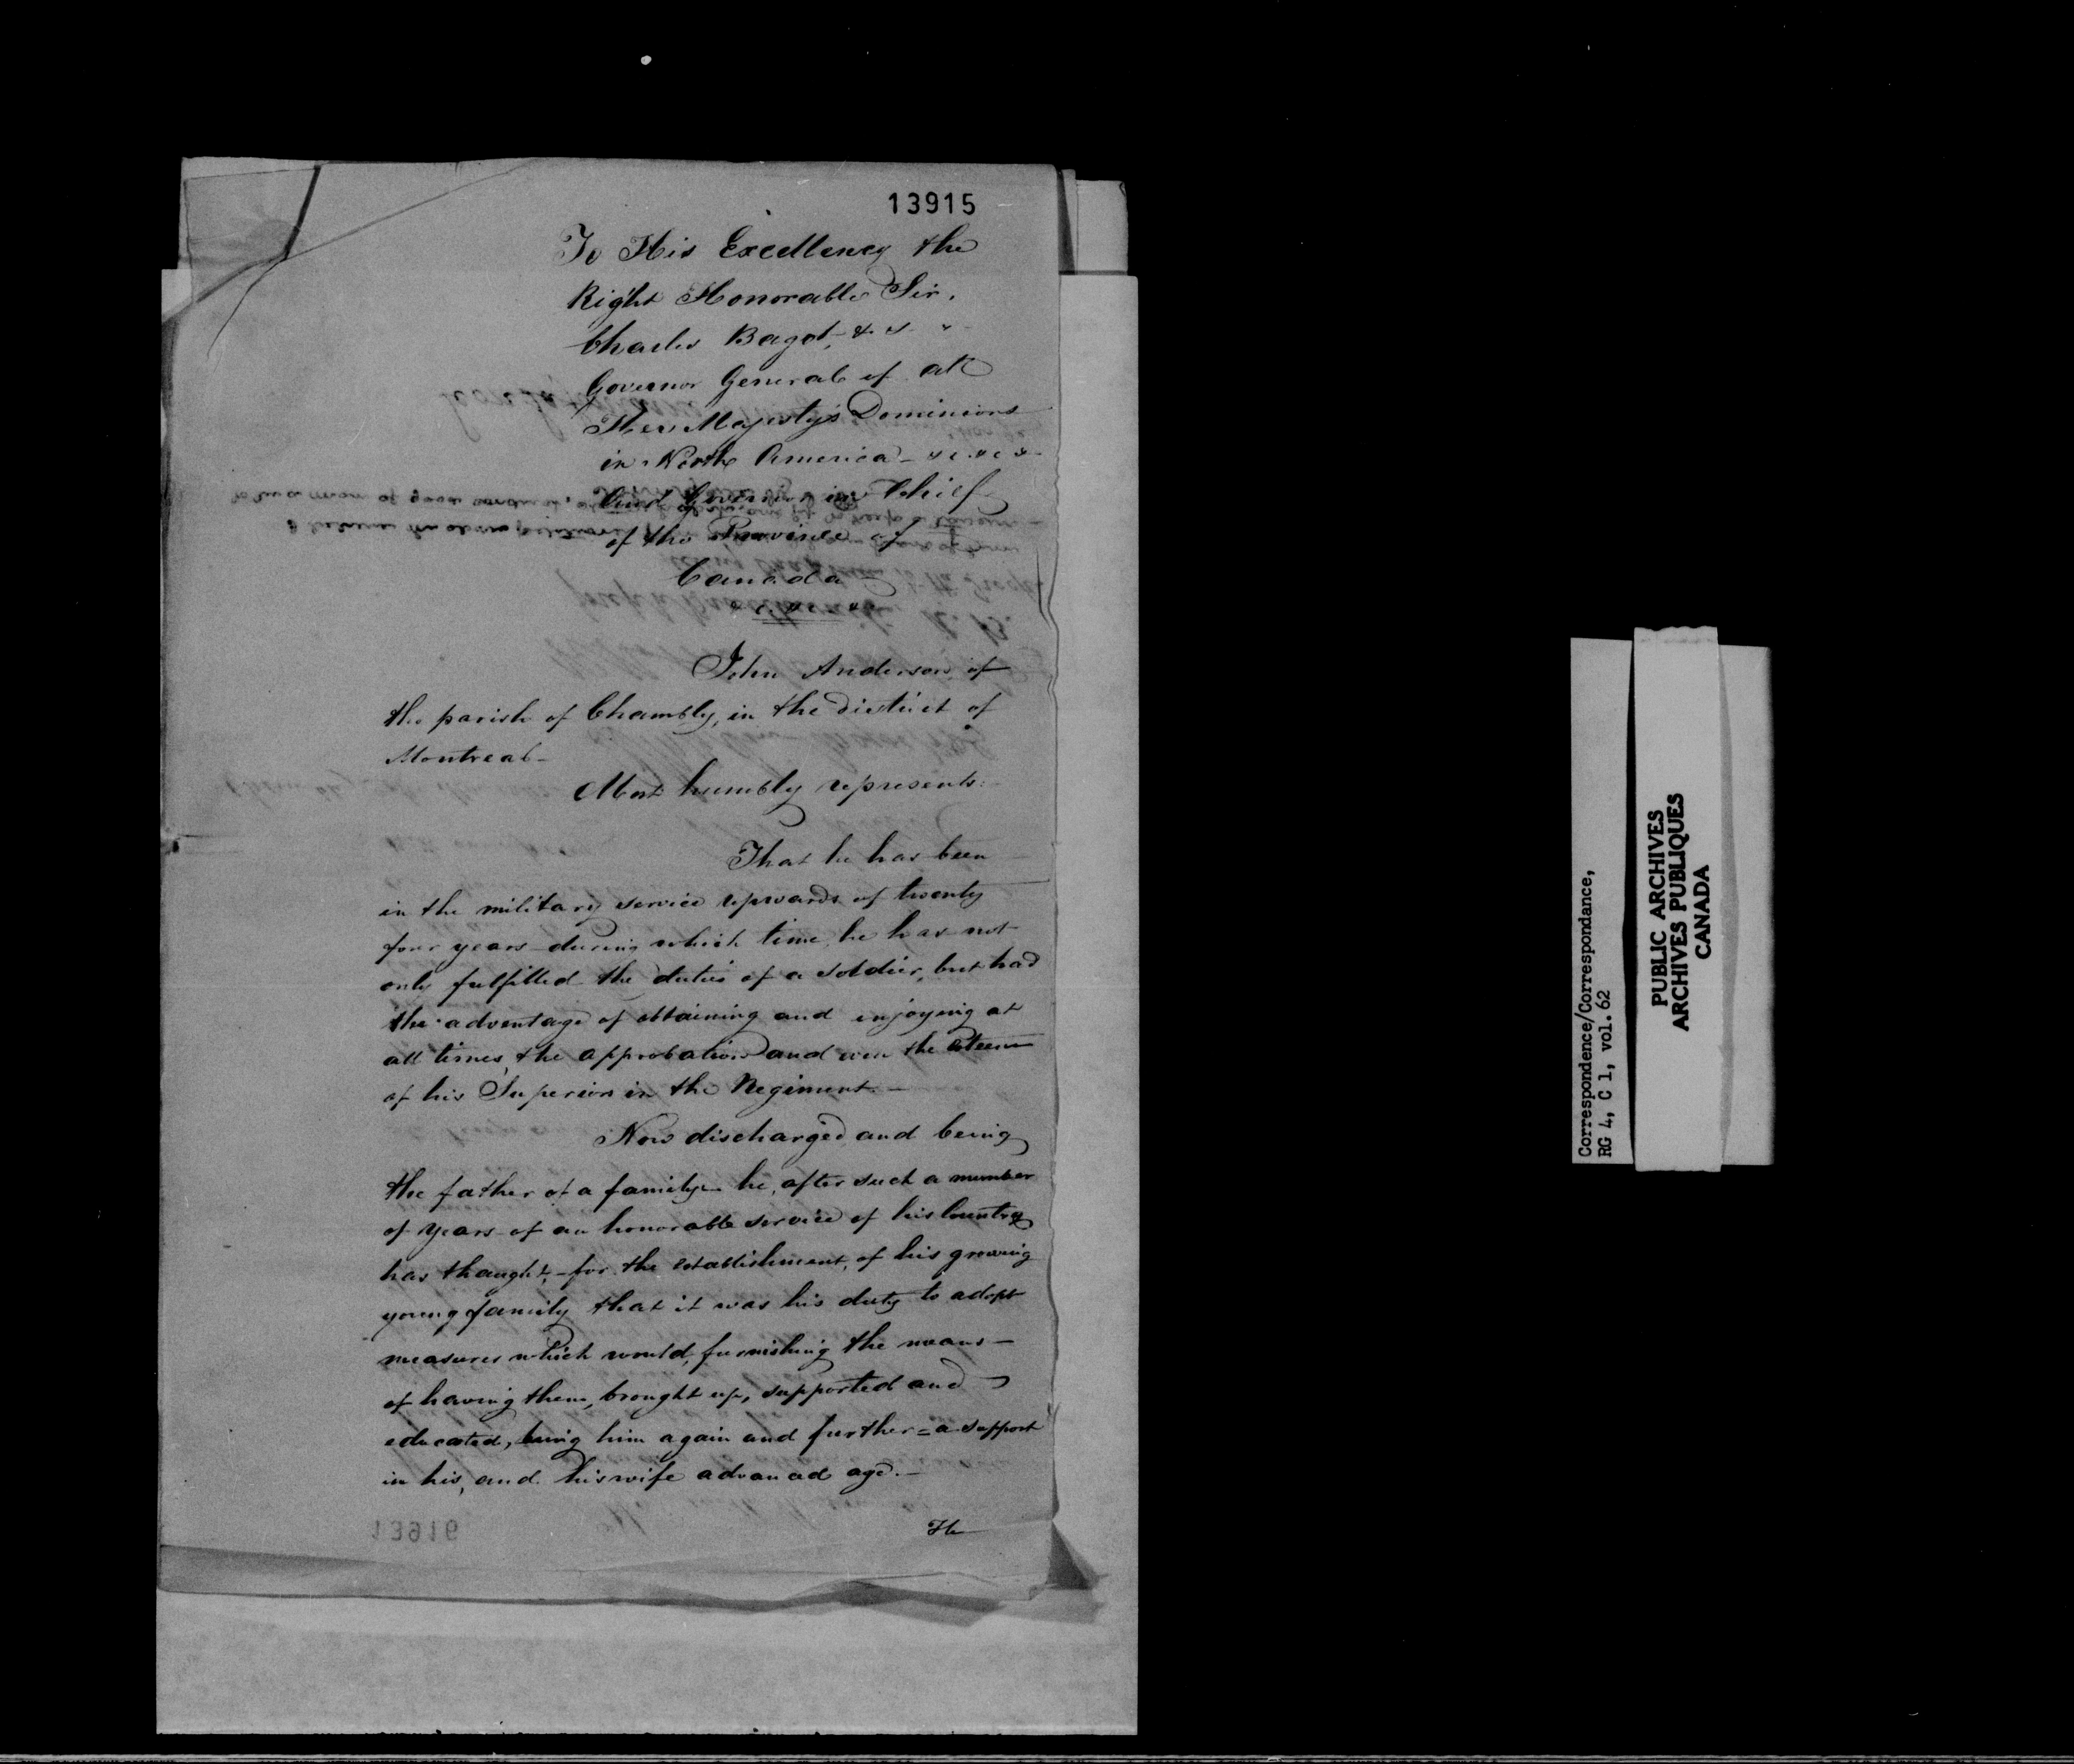 13915
To His Excellency the
Right Honorable Sir.
Charles Bagot, &. &.
Governor General of all
Her Majesty's Dominions
in North America - &c. &c &
And Governor in Chief
of the Province of
Canada
&c. &c. &c.
John Anderson of
the parish of Chambly, in the district of
Montreal -
Most humbly represents:
That he has been
in the military service upwards of twenty
four years - during which time, he has not
only fulfilled the duties of a soldier, but had
the advantage of obtaining and enjoying at
all times, the approbation and even the esteem
of his Superiors in the Regiment. -
Now discharged and being
the father of a family - he, after such a number
of years of an honorable service of his Country
has thought, - for the establishment, of his growing
young family that it was his duty to adopt
measures which would, furnishing the means -
of having them, brought up, supported and
educated, being him again and further = a support
in his, and his wife advanced age. -
He
13916
Correspondence/Correspondance,
RG 4, C 1, vol. 62
PUBLIC ARCHIVES
ARCHIVES PUBLIQUES
CANADA